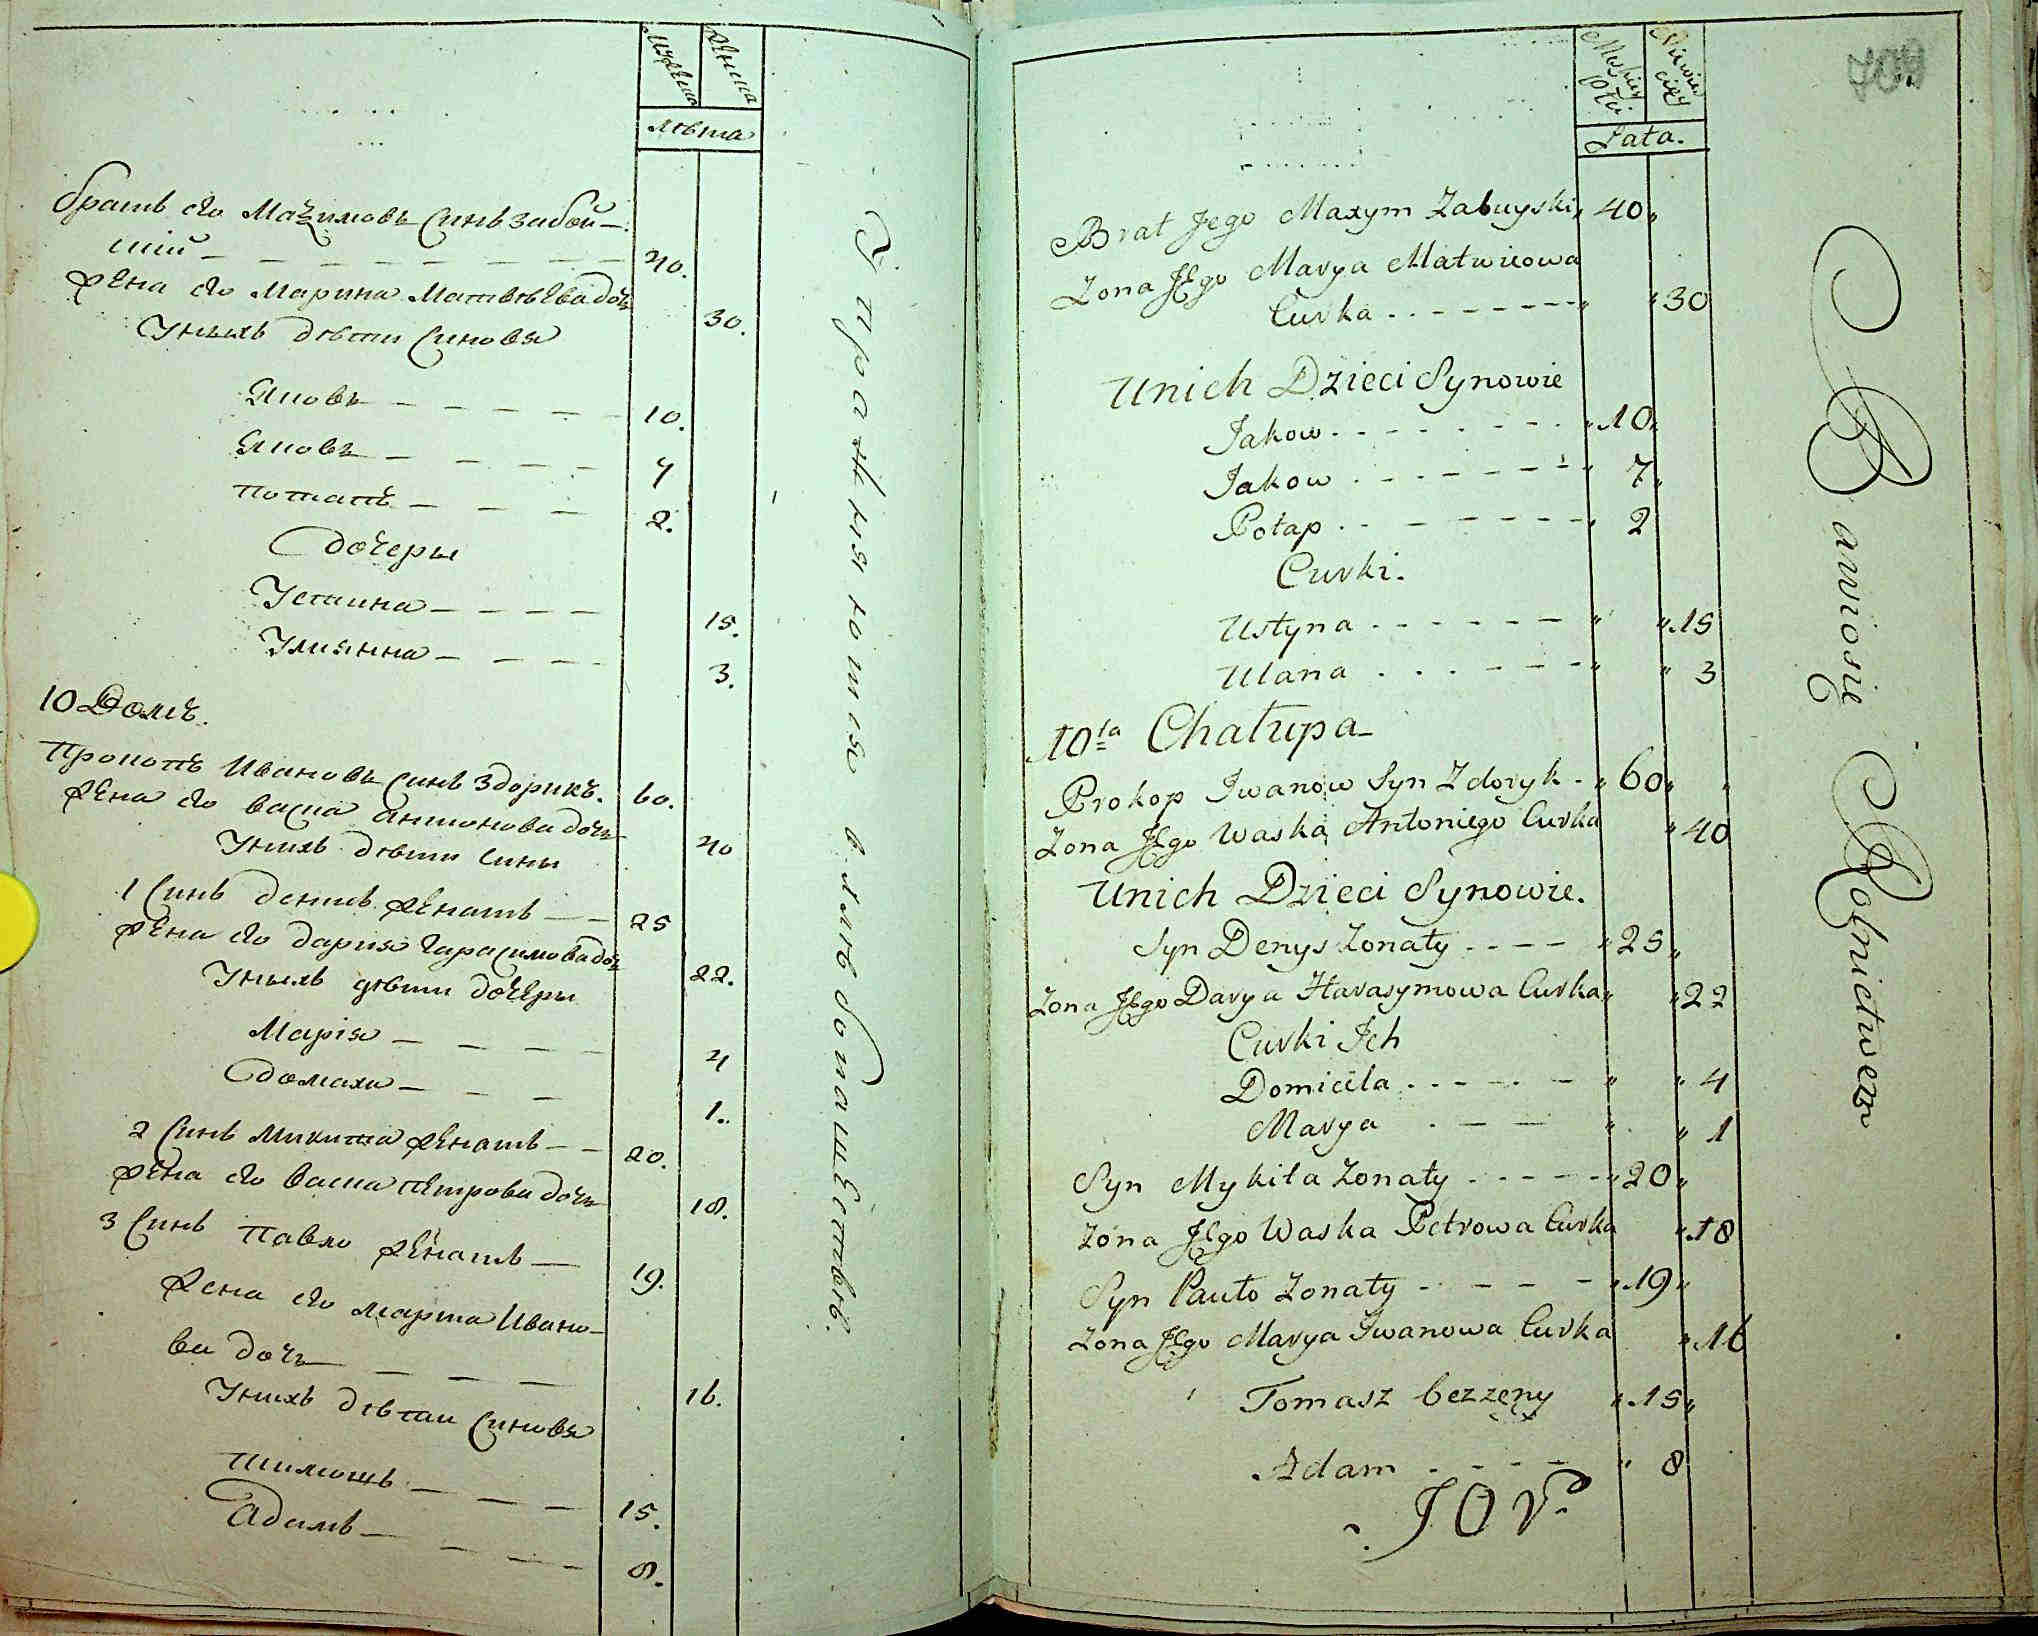 Мужска
Женска
лѣта
братъ его Мазимовъ Синъ Забой-
ский 40.
жена его Марина Матвѣева дочь 30.
Унихъ дѣти Синовя
Яковъ 10.
Яковъ 7
потапъ 2.
дочеры
Устина 15.
Улиянна 3.
10 Домъ.
Прокопъ Ивановъ Синъ Здорикъ. 60.
жена его васка антонова дочь 40
Унихъ дѣти Сины
1 Синъ денисъ женатъ 25
жена его дария гарасимова дочь 22.
Унихъ дѣти дочеры
Марія 4
домаха 1.
2 Синъ Микита женатъ 20.
жена его васка петрова дочь 18.
3 Синъ павло женатъ 19.
жена его марта Ивано-
ва дочь 16.
Унихъ дѣти Синовя
тимошъ 15.
адамъ 8.
Упражняются в хлѣбопашествѣ.
Mąskiey płci.
Niewieściey
Lata.
Brat Jego Maxym Zabuyski 40
Zona Jego Marya Matwieowa
Curka 30
Unich Dzieci Synowie
Jakow 10
Jakow 7
Potap 2
Curki.
Ustyna 15
Ulana 3
10ta Chałupa
Prokop Iwanow Syn Zdoryk 60
Zona Jego Waska Antoniego Curka 40
Unich Dzieci Synowie.
Syn Denys Zonaty 25
Zona Jego Darya Harasymowa Curka 22
Curki Jch
Domicela 4
Marya 1
Syn Mykita Zonaty 20
Zona Jego Waska Petrowa Curka 18
Syn Pauło Zonaty 19
Zona Jego Marya Iwanowa Curka 16
Tomasz bezzęny 15
Adam 8
Bawiosię Rolnictwem